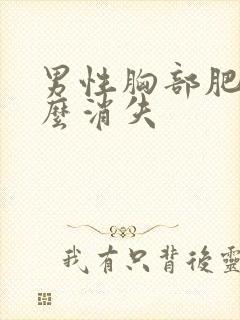 男性胸部肥
麼消失
我有只背後靈